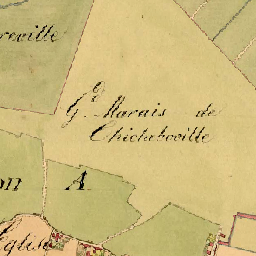 reville
Gd. Marais de
Chicheboville
on A
Eglise